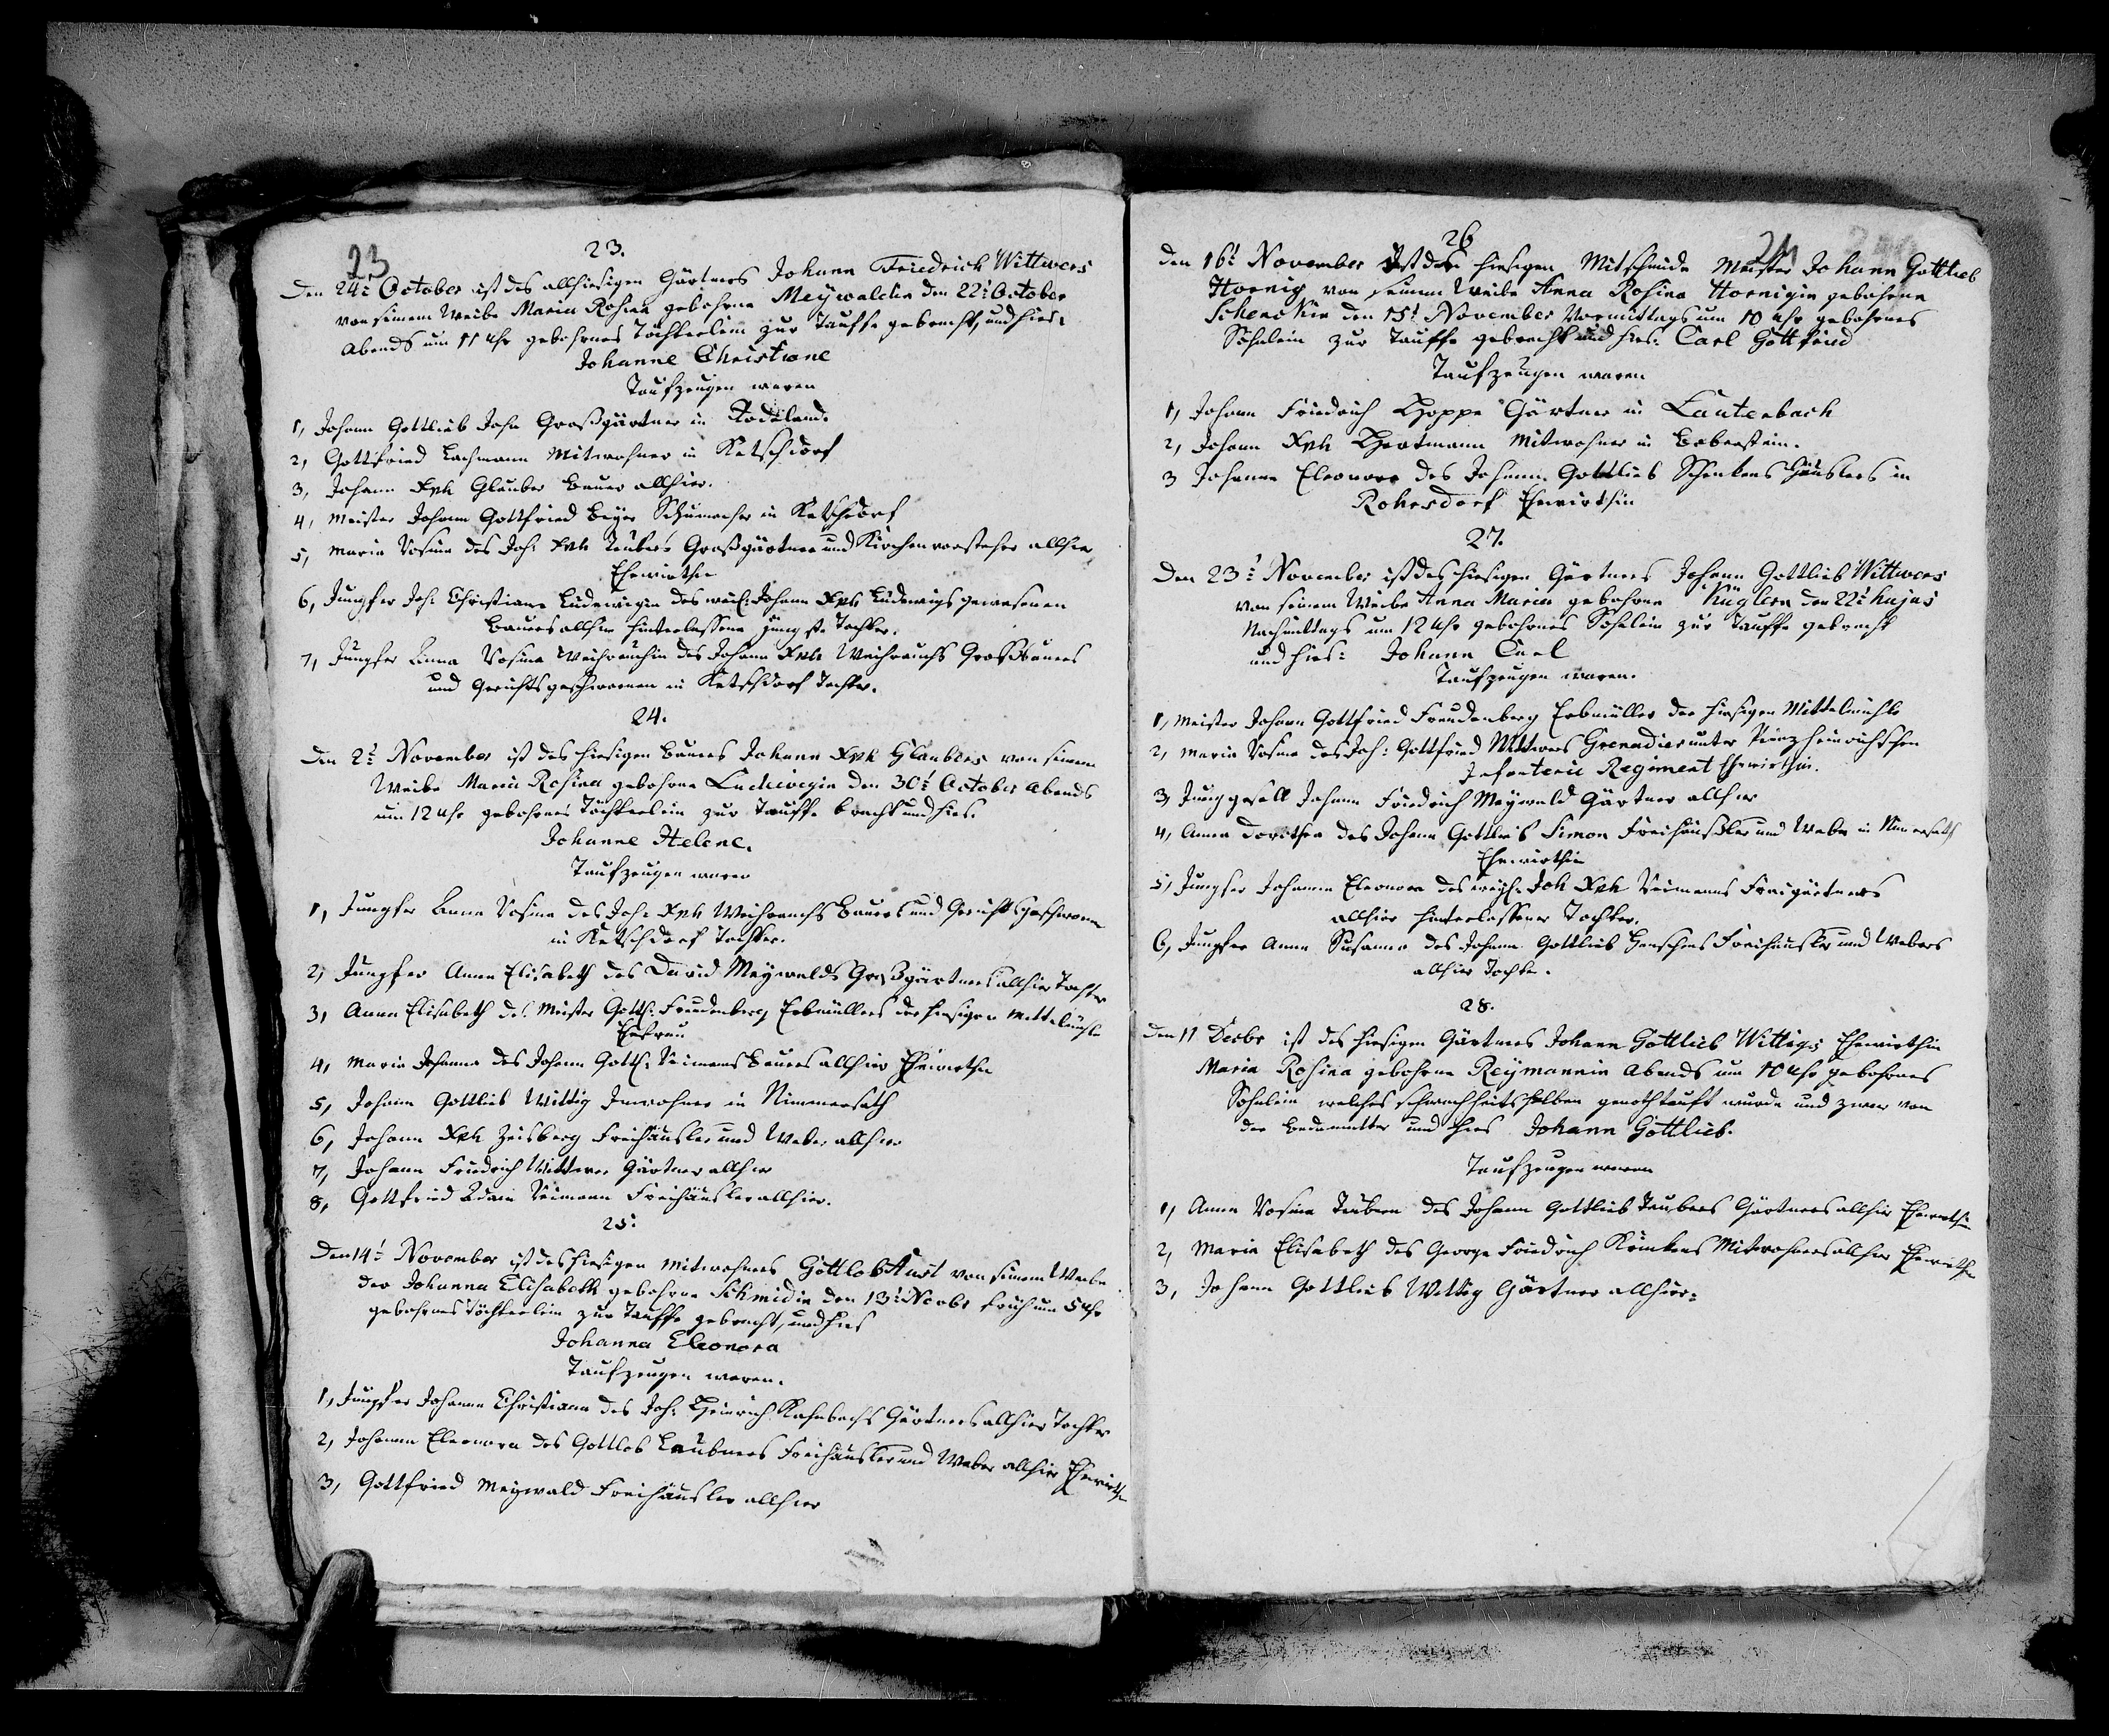 23
23.
Den 24t October ist des allhiesigen Gärtners Johann Friedrich Wittwers
von seinem Weibe Maria Rosina gebohrne Meywaldin den 22t October
Abends um 11 Uhr gebohrnes Töchterlein zur Tauffe gebracht, und hies:
Johanne Christiane
Taufzeugen waren
1, Johann Gottlieb John Großgärtner in Rodeland.
2, Gottfried Lachmann Mitwohner in Ketschdorf
3, Johann Xph Glauber Bauer allhier.
4, Meister Johann Gottfried Beyer Schumacher in Ketschdorf
5, Maria Rosina des Joh: Xph Teubers Großgärtner und Kirchenvorsteher allhier
Ehewirthin
6, Jungfer Joh: Christiane Ludewigin des weil: Johann Xph Ludewigs gewesenen
Bauers allhier hinterlassene jüngste Tochter.
7, Jungfer Anna Rosina Weihrauchin des Johann Xph Weihrauchs Großbauers
und Gerichtsgeschworenen in Ketschdorf Tochter.
24.
Den 2t November ist des hiesigen Bauers Johann Xph Glaubers von seinem
Weibe Maria Rosina gebohrne Ludewigin den 30t October Abends
um 12 Uhr gebohrnes Töchterlein zur Tauffe bracht und hies.
Johanne Helene.
Taufzeugen waren
1, Jungfer Anna Rosina des Joh: Xph Weihrauchs Bauers und Gerichtsgeschworenen
in Ketschdorf Tochter.
2, Jungfer Anna Elisabeth des David Meywalds Großgärtners allhier Tochter
3, Anna Elisabeth des Meister Gottf: Freudenberg Erbmüllers der hiesigen Mittelmühle
Ehefrau
4, Maria Johanna des Johann Gottf: Reimanns Bauers allhier Ehewirthin
5, Johann Gottlieb Wittig Inwohner in Nimmersath
6, Johann Xph Zeisberg Freihäusler und Weber allhier
7, Johann Friedrich Wittwer Gärtner allhier
8, Gottfried Adam Reimann Freihäusler allhier.
25.
Den 14t November ist des hiesigen Mitwohners Gottlob Aust von seinem Weibe
der Johanna Elisabeth gebohrne Schmidin den 13t Novbr früh um 5 Uhr
gebohrnes Töchterlein zur Tauffe gebracht, und hies
Johanna Eleonora
Taufzeugen waren.
1, Jungfer Johanne Christiana des Joh: Heinrich Kasnbachs Gärtners allhier Tochter
2, Johanna Eleonora des Gottlob Leubners Freihäusler und Weber allhier Ehewirthin
3, Gottfried Meywald Freihäusler allhier
24
26
Den 16t November Ist des hiesigen Mitschmids Meister Johann Gottlieb
Hornig von seinem Weibe Anna Rosina Hornigin gebohrne
Schenckin den 15t November Vormittags um 10 Uhr gebohrnes
Söhnlein zur Tauffe gebracht und hies: Carl Gottfried
Taufzeugen waren
1, Johann Friedrich Hoppe Gärtner in Lauterbach
2, Johann Xph Hartmann Mitwohner in Boberstein.
3 Johanne Eleonore des Johann Gottlieb Schenkens Häuslers in
Rohrsdorf Ehewirthin
27.
Den 23t November ist des hiesigen Gärtners Johann Gottlieb Wittwers
von seinem Weibe Anna Maria gebohrne Küglern den 22t hujus
Nachmittags um 12 Uhr gebohrnes Söhnlein zur Tauffe gebracht
und hies: Johann Carl
Taufzeugen waren.
1, Meister Johann Gottfried Freudenberg Erbmüller der hiesigen Mittelmühle
2, Maria Rosina des Joh: Gottfried Wittwers Grenadier unter Prinz Heinrichschen
Infanterie Regiment Ehewirthin.
3, Junggesell Johann Friedrich Meywald Gärtner allhier
4, Anna Dorothea des Johann Gottlieb Simon Freihäusler und Weber in Nimersath
Ehewirthin
5, Jungfer Johanna Eleonora des weyl: Joh Xph Reimanns Freigärtners
allhier hinterlassener Tochter.
6, Jungfer Anna Susanna des Johann Gottlieb Henschels Freihäusler und Webers
allhier Tochter.
28.
Den 11 Decbr ist des hiesigen Gärtners Johann Gottlieb Wittigs Ehewirthin
Maria Rosina gebohrne Reymannin Abends um 10 Uhr gebohrnes
Söhnlein welches schwachheitshalben genothtauft wurde und zwar von
der Bademutter und hies Johann Gottlieb.
Taufzeugen waren
1, Anna Rosina Teubern des Johann Gottlieb Taubers Gärtners allhier Ehewirthin
2, Maria Elisabeth des George Friedrich Kämkens Mitwohners allhier Ehewirthin
3, Johann Gottlieb Wittig Gärtner allhier: